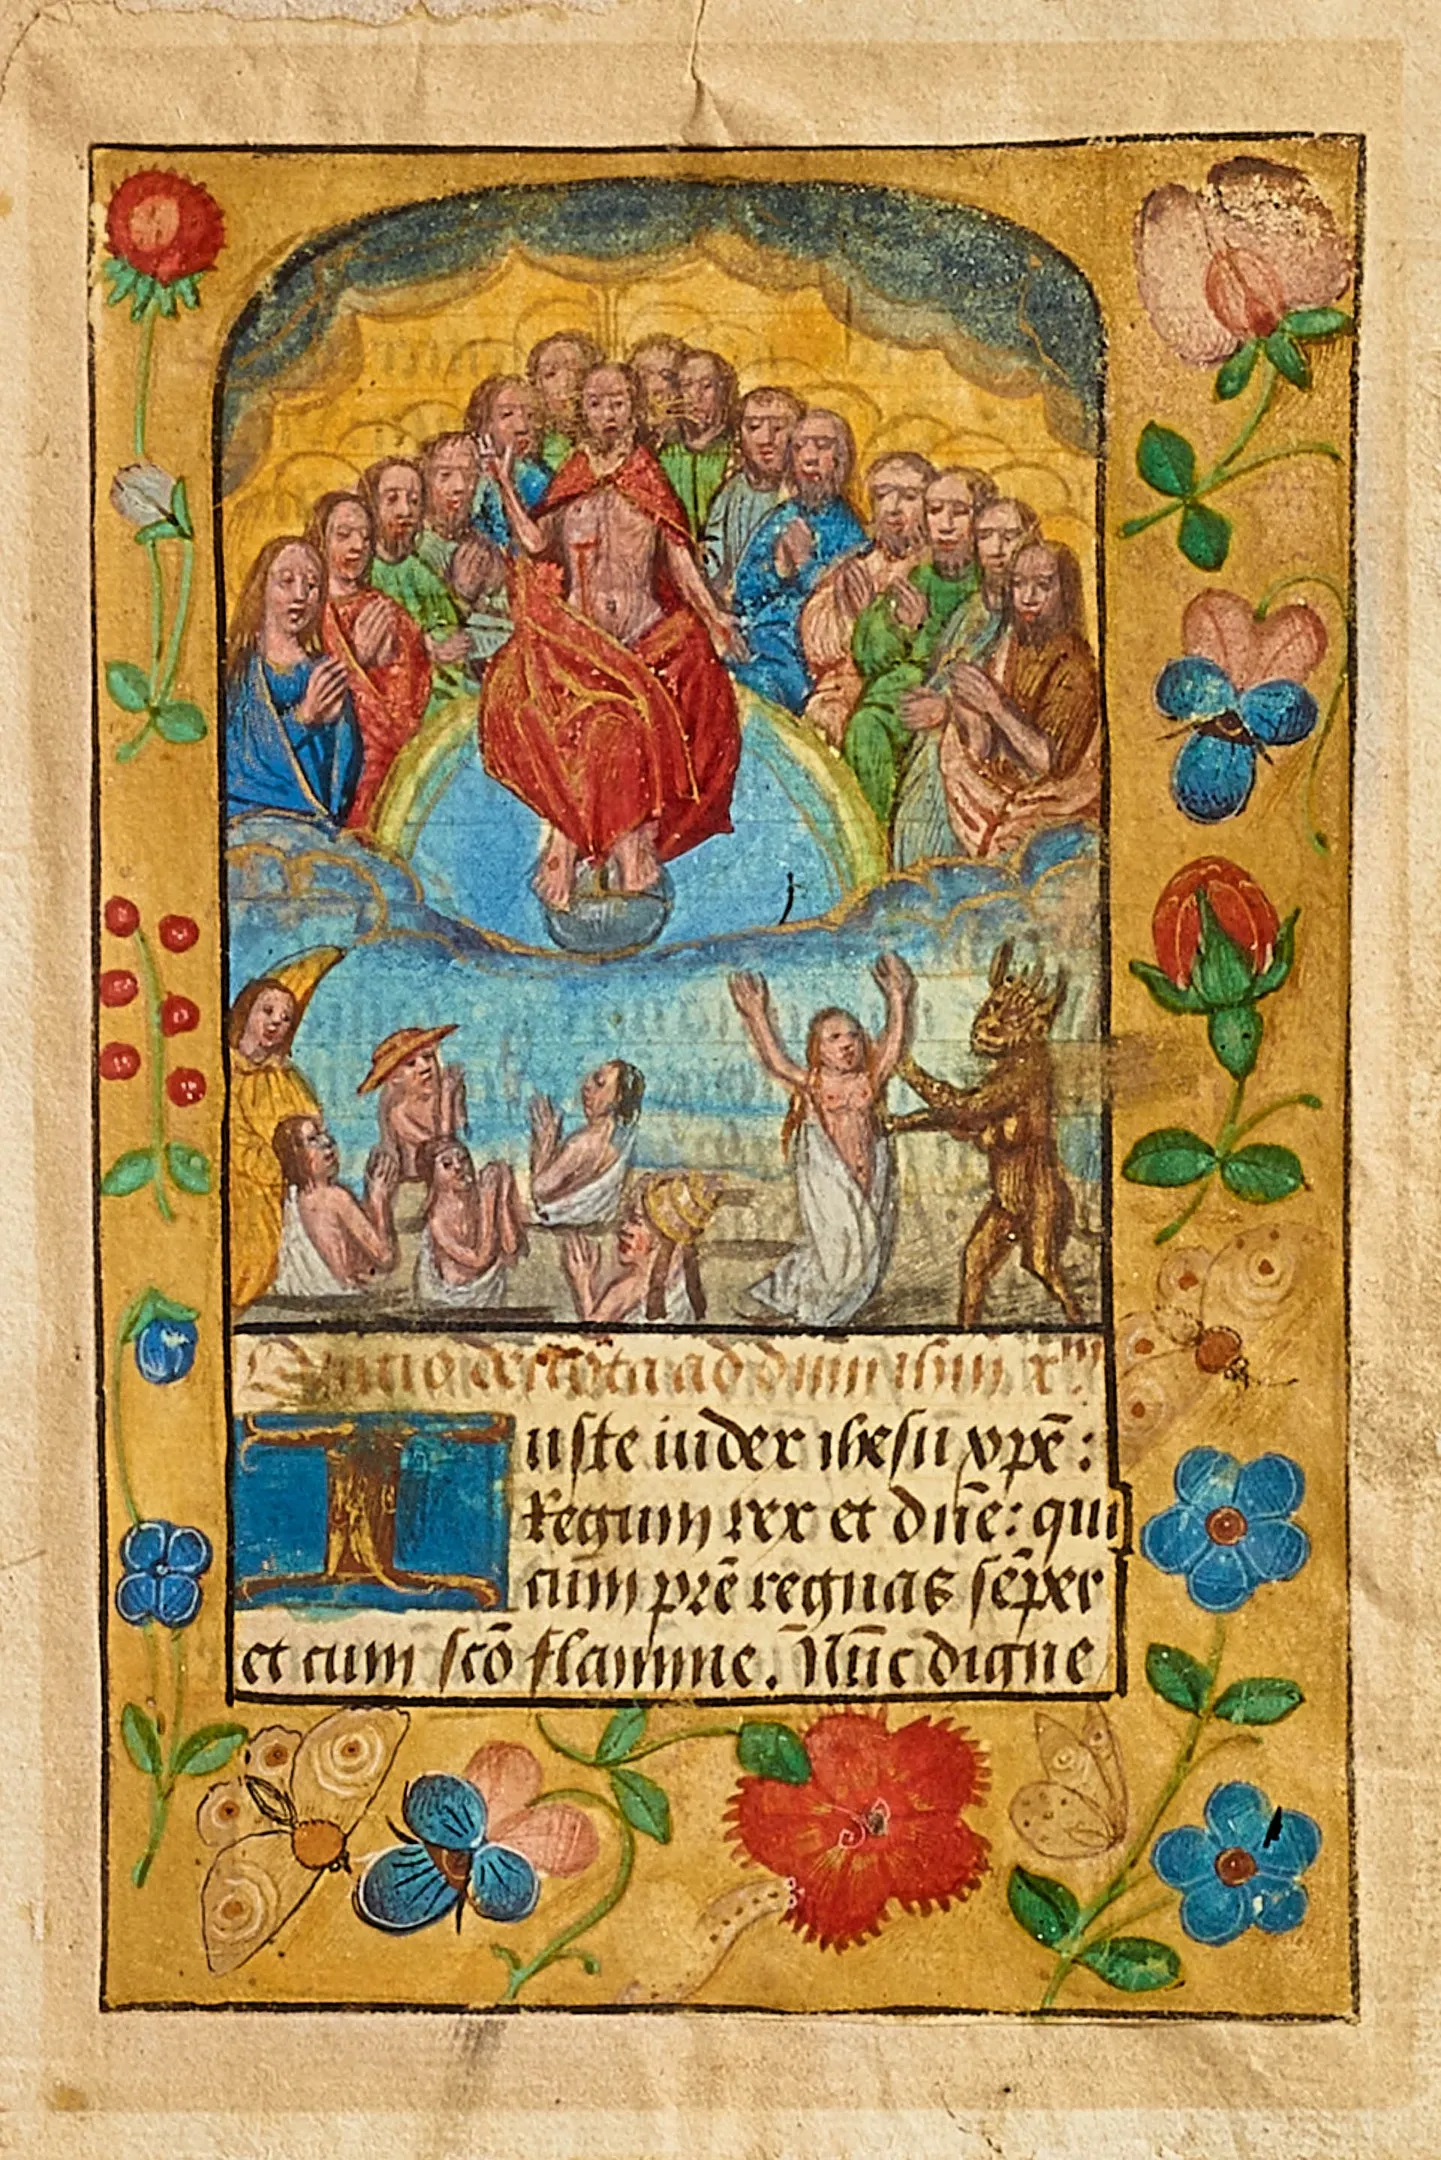 Oratio deuota ad dnm ihm xpm
Iuste iudex ihesu xpē :
Regum rex et dñe : qui
cum prē regnas sēper
et cum scō flamine. Nūc digne